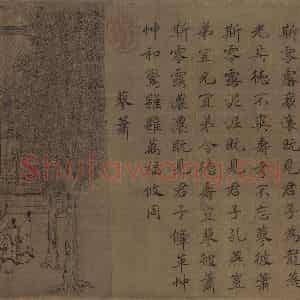 斯零露瀼瀼既見君子為龍為
光其德不爽壽考不忘蓼彼蕭
斯零露泥泥既見君子孔燕豈
弟宜兄宜弟令德壽豈蓼彼蕭
斯零露濃濃既見君子鞗革忡
忡和鸞雝雝萬福攸同
蓼蕭
Shufawang.cn